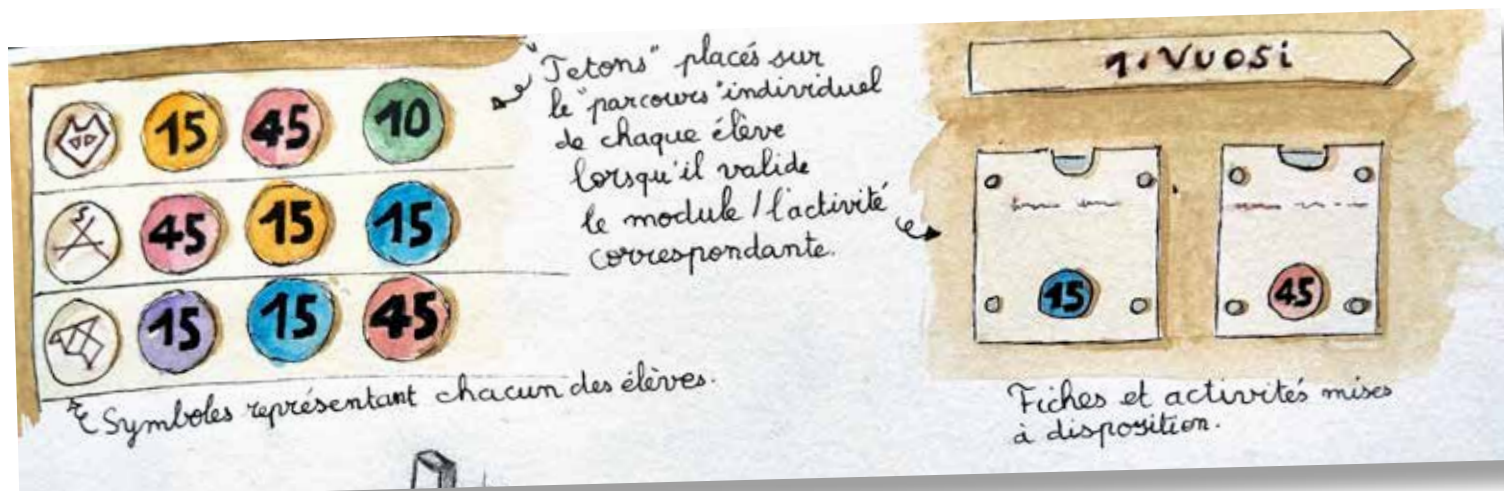 15 45 10
45 15 15
15 15 45
"Jetons" placés sur
le "parcours" individuel
de chaque élève
lorsqu'il valide
le module / l'activité
correspondante.
Symboles représentant chacun des élèves.
1. Vuosi
15
45
Fiches et activités mises
à disposition.